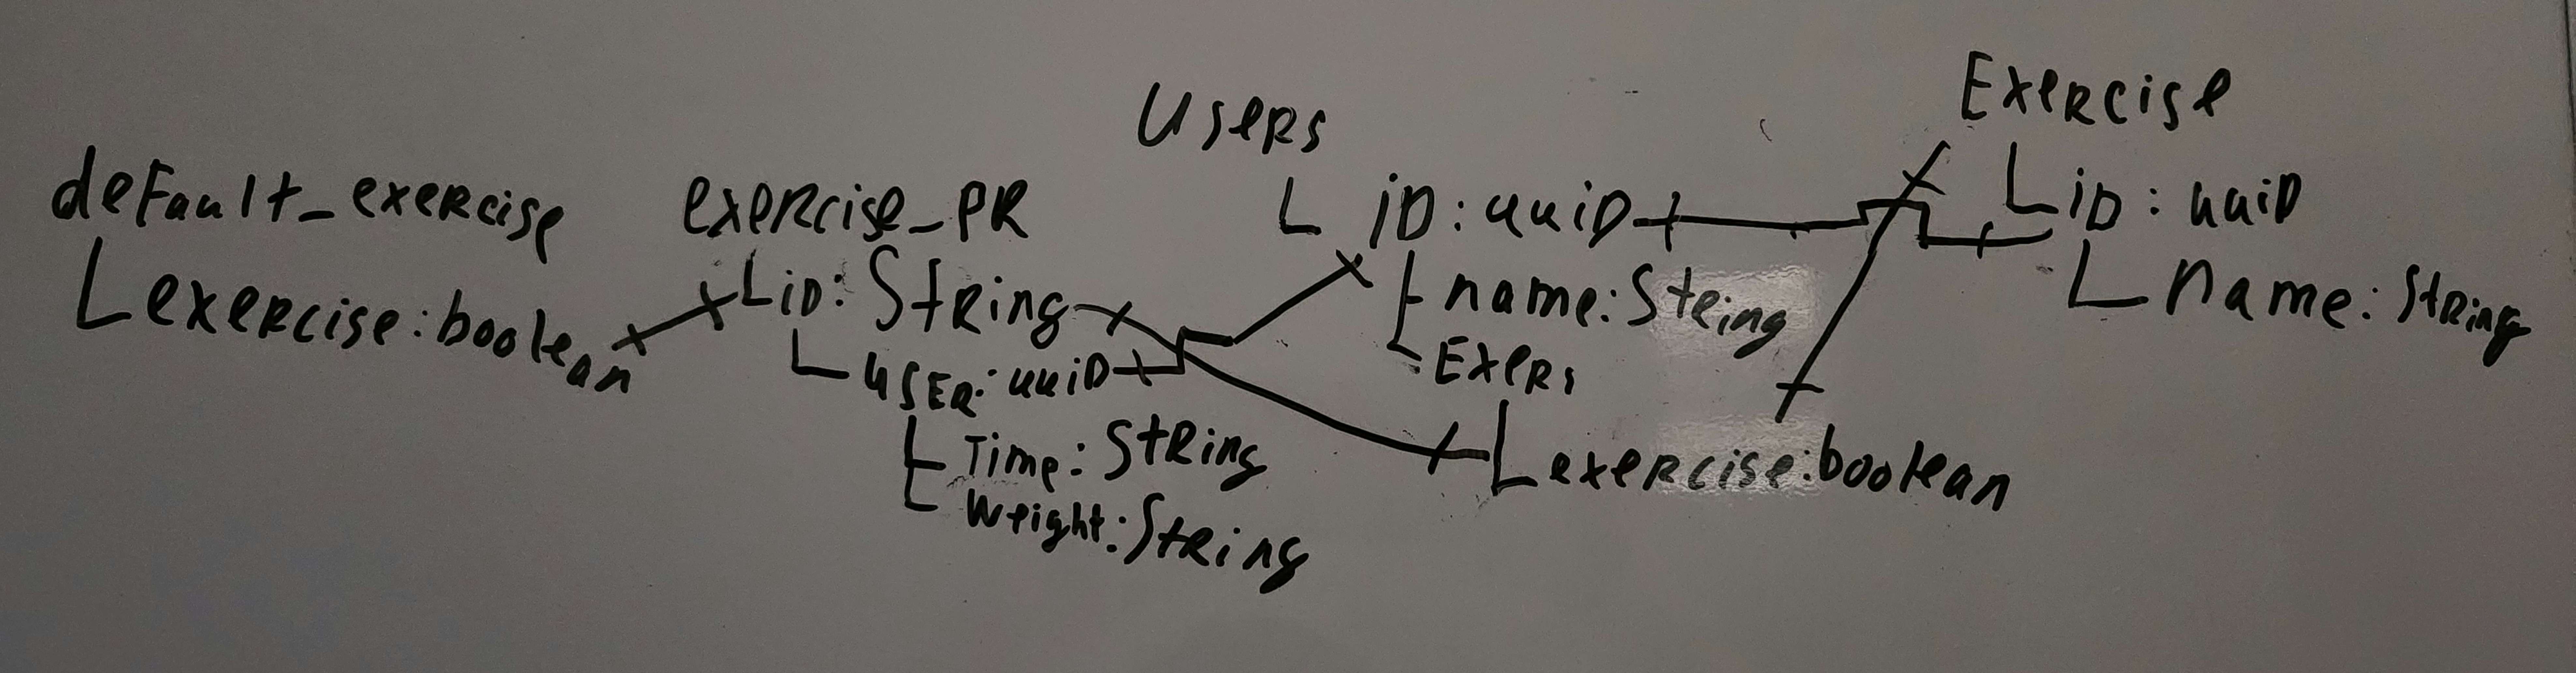 default_exercise
exercise:boolean
exercise_PR
iD: String
USER: uuiD
Time: String
Weight: String
Users
iD: uuiD
name: String
exercise:boolean
Exercise
iD: uuiD
name: String